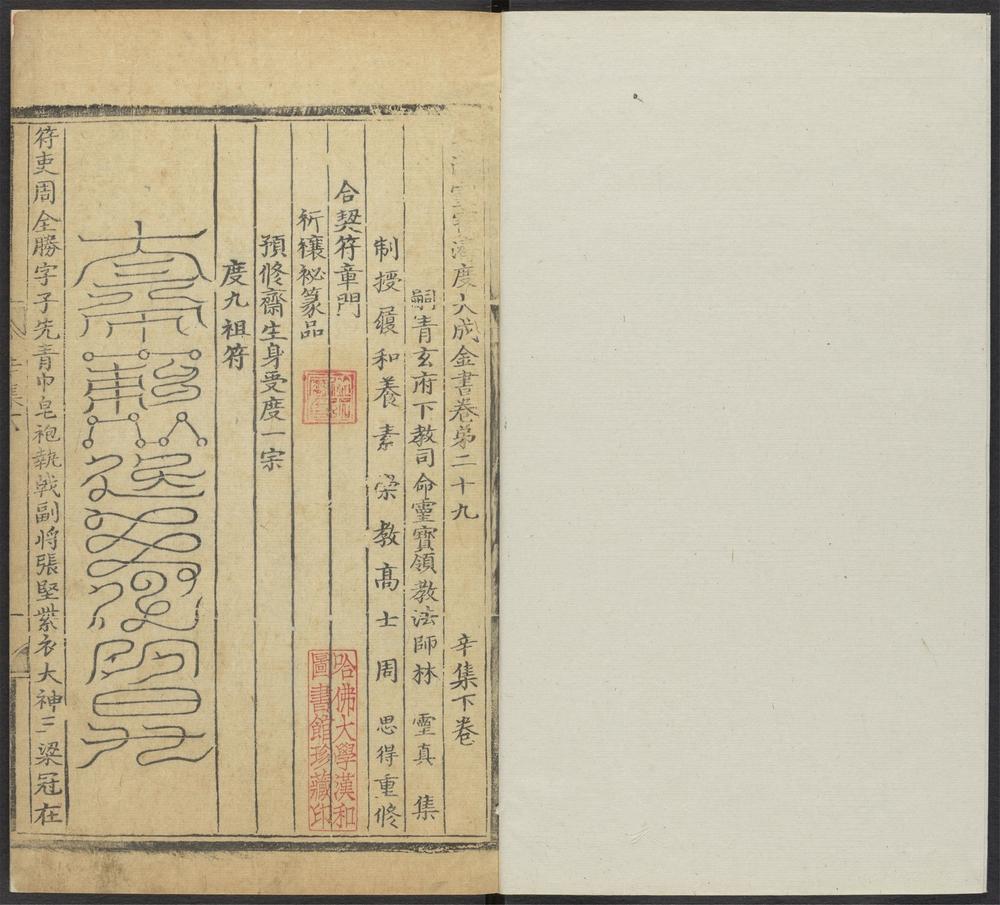 濟度大成金書卷第二十九 辛集下卷
嗣青玄府下教司命靈寶領教法師林 靈真 集
制授履和養素崇教高士 周 思得重修
合契符章門
祈禳祕篆品
預修齋生身受度一宗
度九祖符
符吏周全勝字子先青巾皂袍執戟副将張堅紫衣大神三梁冠在
哈佛大學漢和
圖書館珍藏印